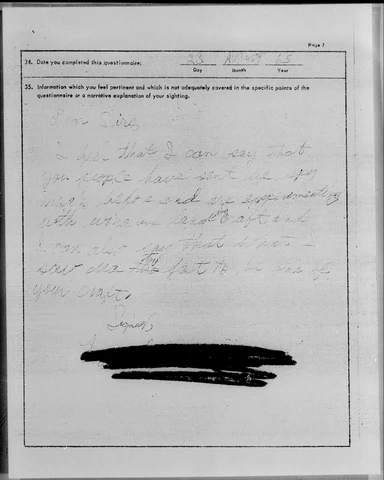 Page 7
34. Date you completed this questionnaire: 23 August 65
Day Month Year
35. Information which you feel pertinent and which is not adequately covered in the specific points of the
questionnaire or a narrative explanation of your sighting.
Dear Sirs,
I feel that I can say that
you people have sent me
and are experimenting
with land craft and
can also say that what I
saw the fact to be one of
your craft.
Signed,